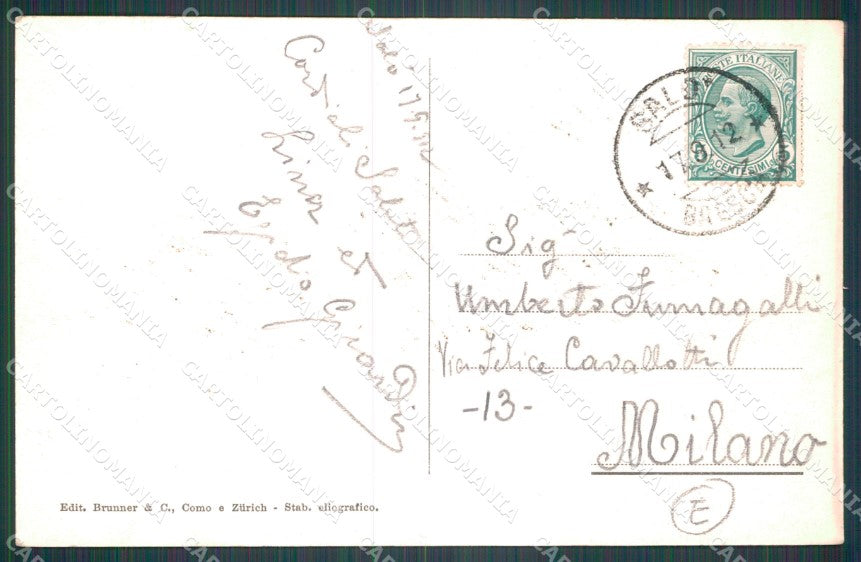 Salò 17.9.12
Cordiali Saluti
Lina et
Egidio Girardin
POSTE ITALIANE
CENTESIMI 5
SALÒ
17.9.12
BRESCIA
Sig.
Umberto Fumagalli
Via Felice Cavallotti
-13-
Milano
E
Edit. Brunner & C., Como e Zürich - Stab. eliografico.
CARTOLINOMANIA